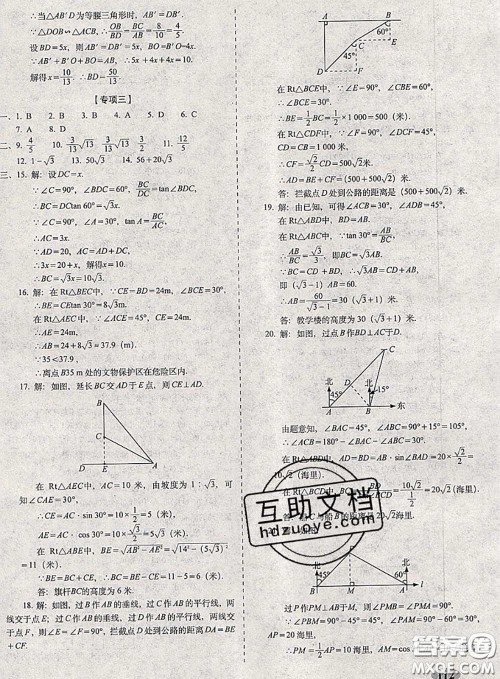 ∴当△AB′D′为等腰三角形时，AB′=DB′.
∵△DOB∽△ACB，∴OB/BD=BC/AB=8/10=4/5.
设BD=5x，则AB′=DB′=5x，BO=B′O=4x.
∵AB′+B′O+BO=AB，∴5x+4x+4x=10.
解得x=10/13.∴BD=50/13.
【专项三】
一、1. B 2. B 3. D 4. B 5. C 6. D
7. A 8. D
二、9. 4/5 10. 3/√13 2/13√13 3/2 11. 12/5
12. 1-√3 13. 45° 14. 56+20√3
三、15. 解：设DC=x.
∵∠C=90°，∠BDC=60°，∴BC/DC=tan∠BDC.
∴BC=DCtan 60°=√3x.
∵∠C=90°，∠A=30°，tan A=BC/AC，
∴AC=3x.
∵AD=20，AC=AD+DC，
∴3x=20+x，解得x=10.
∴BC=√3x=10√3.
16. 解：在Rt△BEC中，∵CE=BD=24m，∠BCE=30°，
∴BE=CEtan 30°=8√3m.
在Rt△AEC中，∵∠ACE=45°，CE=24m，
∴AE=24m.
∴AB=24+8√3≈37.9(m).
∵35<37.9，
∴离点B35 m处的文物保护区在危险区内.
17. 解：如图，延长BC交AD于E点，则CE⊥AD.
B
C
D E A
在Rt△AEC中，AC=10米，由坡度为1：√3，可知∠CAE=30°.
∴CE=AC·sin30°=10×1/2=5(米)，
AE=AC·cos30°=10×√3/2=5√3(米).
在Rt△ABE中，BE=√(AB²-AE²)=√(14²-(5√3)²)=11(米).
∵BE=BC+CE，∴BC=BE-CE=11-5=6(米).
答：旗杆BC的高度为6米.
18. 解：如图，过B作AB的垂线，过C作AB的平行线，两线交于点E；过C作AB的垂线，过D作AB的平行线，两线交于点F，则∠E=∠F=90°，拦截点D处到公路的距离DA=BE+CF.
A B
60° E
C
45°
D F
在Rt△BCE中，∵∠E=90°，∠CBE=60°，
∴∠BCE=30°.
∴BE=1/2BC=1/2×1 000=500(米).
在Rt△CDF中，∵∠F=90°，∠DCF=45°，
CD=CB=1 000米，
∴CF=√2/2CD=500√2(米).
∴AD=BE+CF=(500+500√2)(米).
答：拦截点D处到公路的距离是(500+500√2)米.
19. 解：由已知，可得∠ACB=30°，∠ADB=45°，
∴在Rt△ABD中，BD=AB.
又在Rt△ABC中，∵tan 30°=AB/BC，
∴AB/BC=√3/3，即BC=√3AB.
∵BC=CD+BD，∴√3AB=CD+AB，
∴AB=60/(√3-1)=30(√3+1)米.
答：教学楼的高度为30(√3+1)米.
20. 解：如图，过点B作BD⊥AC于D.
C
北 D 北
45° 15°
A B 东
由题意知，∠BAC=45°，∠ABC=90°+15°=105°，
∴∠ACB=180°-∠BAC-∠ABC=30°.
在Rt△ABD中，AD=BD=AB·sin∠BAD=20×√2/2=10√2(海里).
在Rt△BCD中，BC=BD/sin∠BCD=10√2÷1/2=20√2(海里).
答：船C与船B的距离是20√2海里.
互助文档
hdzuoye.com
北 P 北
45° 60°
B M A l
过P作PM⊥AB于M，则∠PMB=∠PMA=90°.
∵∠PBM=90°-45°=45°，∠PAM=90°-60°=30°，
AP=20海里，∴PM=1/2AP=10海里，AM=cos
答案圈
112